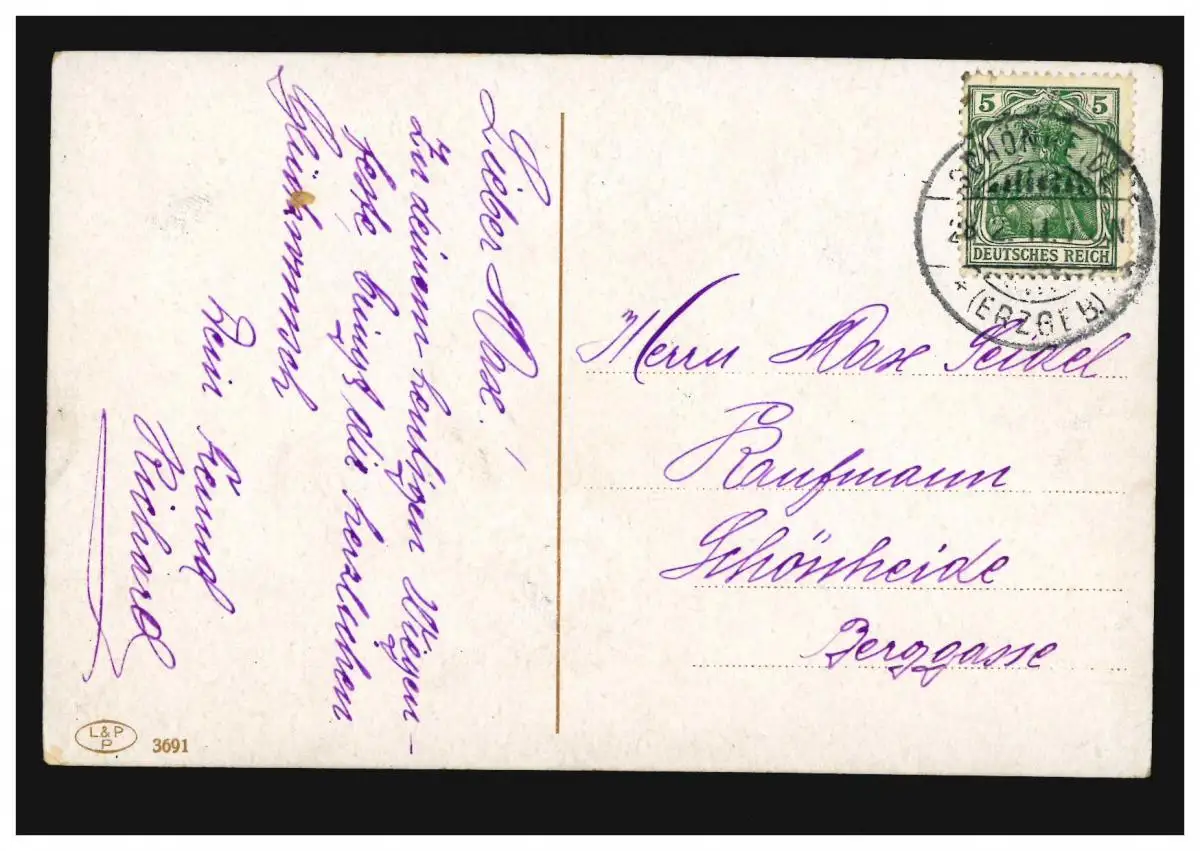 Lieber Max!
Zu deinem heutigen Wiegen-
feste bringt die herzlichen
Glückwunsch
Dein Freund
Richard
5 5
DEUTSCHES REICH
SCHÖNHEIDE
(ERZGEB.)
Herrn Max Seidel
Kaufmann
Schönheide
Berggasse
L&P
P
3691